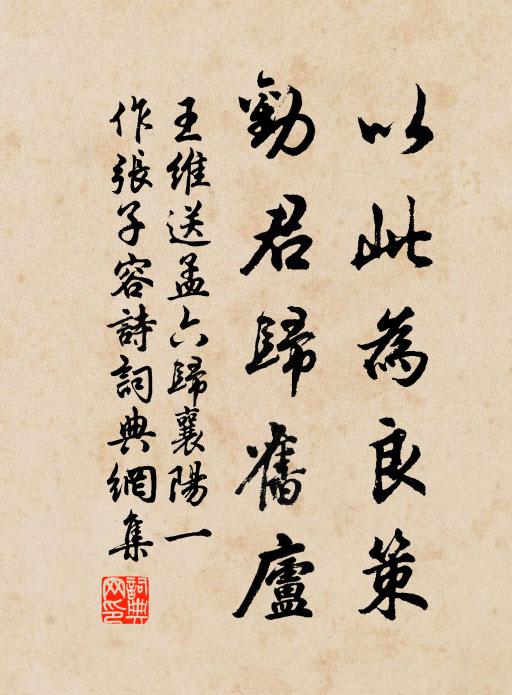 以此為良策
勸君歸舊廬
王維送孟六歸襄陽一
作張子容詩詞典網集
詞典
网印